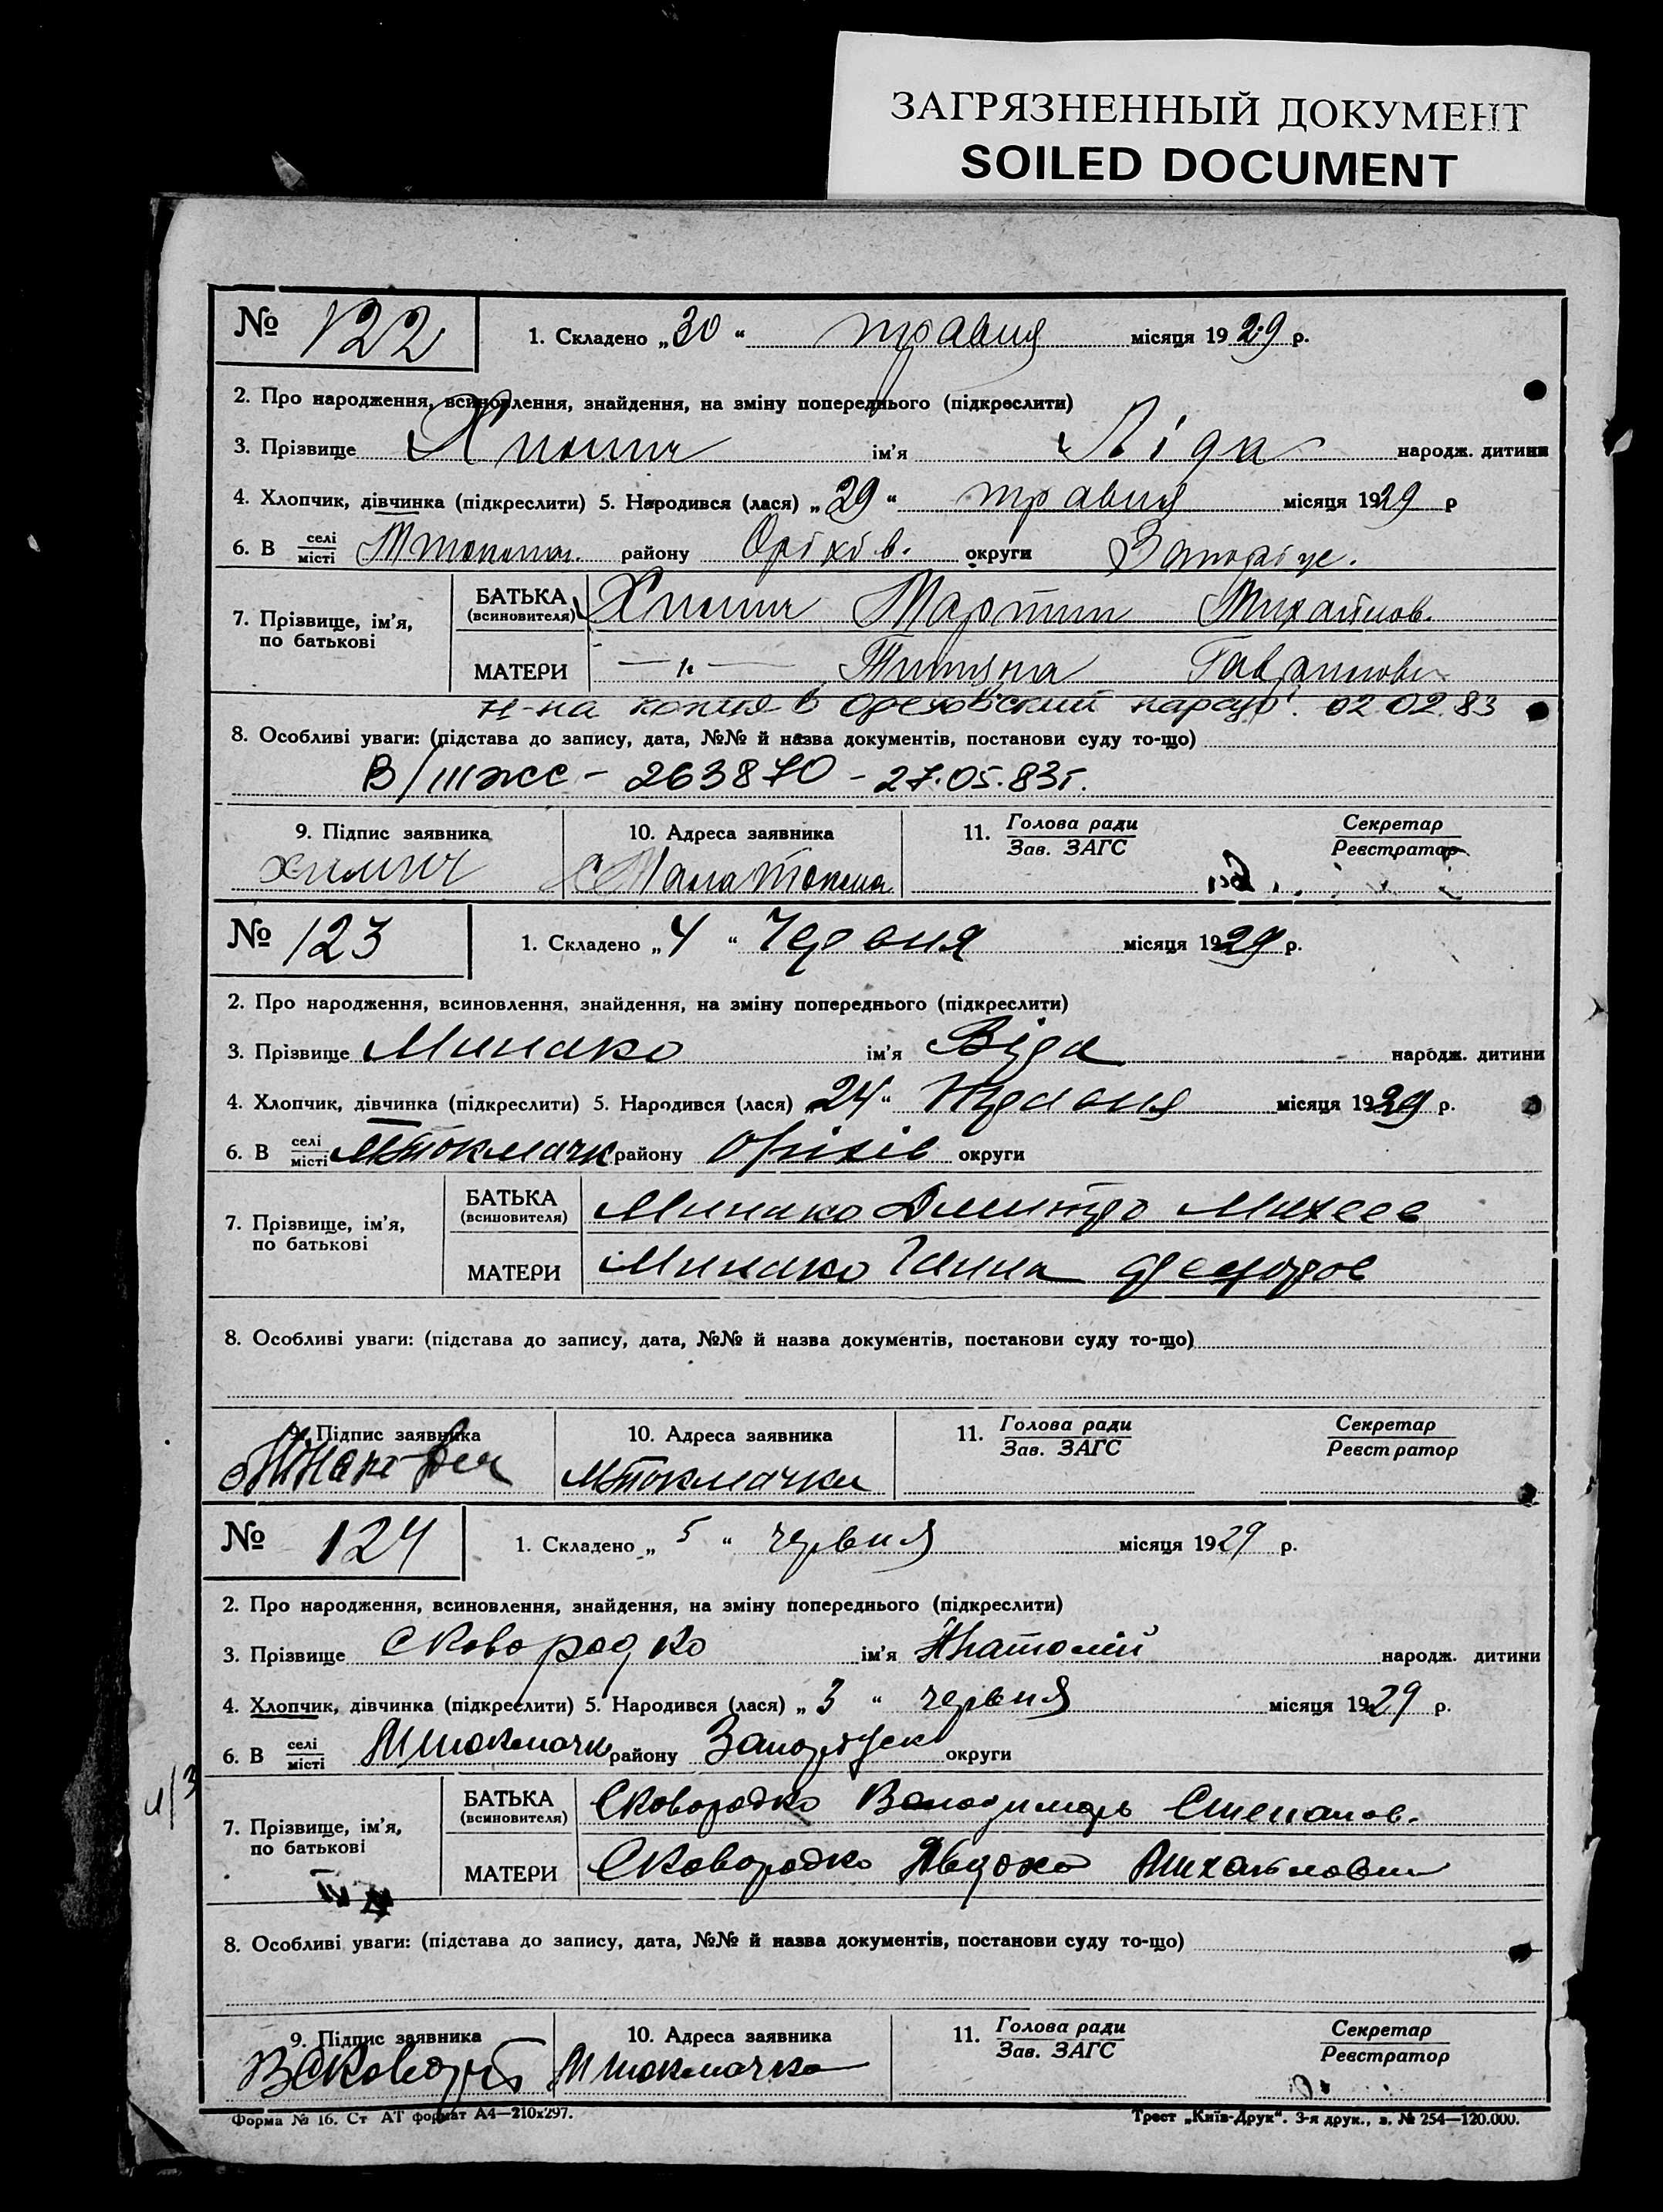 ЗАГРЯЗНЕННЫЙ ДОКУМЕНТ
SOILED DOCUMENT
№ 122
1. Складено „30“ травня місяця 1929 р.
2. Про народження, всиновлення, знайдення, на зміну попереднього (підкреслити)
3. Прізвище Химич ім'я Ліда народж. дитини
4. Хлопчик, дівчинка (підкреслити) 5. Народився (лася) „29“ травня місяця 1929 р
6. В селі місті району Оріхів. округи Запоріж.
7. Прізвище, ім'я, по батькові
БАТЬКА (всиновителя) Химич Мартин Михайлов.
МАТЕРИ —„— Титяна Гаврилові
копия в Ореховский нарсуд. 02.02.83
8. Особливі уваги: (підстава до запису, дата, №№ й назва документів, постанови суду то-що)
В/III жс – 263870 – 27.05.83г.
9. Підпис заявника 10. Адреса заявника 11. Голова ради Зав. ЗАГС Секретар Реєстратор
химич
№ 123
1. Складено „4“ Червня місяця 1929 р.
2. Про народження, всиновлення, знайдення, на зміну попереднього (підкреслити)
3. Прізвище Минако ім'я Віра народж. дитини
4. Хлопчик, дівчинка (підкреслити) 5. Народився (лася) „24“ місяця 1929 р.
6. В селі місті М Токмачк району Оріхів округи
7. Прізвище, ім'я, по батькові
БАТЬКА (всиновителя) Минако Дмитро Михеев
МАТЕРИ Минако Ганна Федоров
8. Особливі уваги: (підстава до запису, дата, №№ й назва документів, постанови суду то-що)
9. Підпис заявника 10. Адреса заявника 11. Голова ради Зав. ЗАГС Секретар Реєстратор
М Токмачка
№ 124
1. Складено „5“ червня місяця 1929 р.
2. Про народження, всиновлення, знайдення, на зміну попереднього (підкреслити)
3. Прізвище Сковородко ім'я Анатолій народж. дитини
4. Хлопчик, дівчинка (підкреслити) 5. Народився (лася) „3“ червня місяця 1929 р.
6. В селі місті М Токмачк району Запоріжск округи
7. Прізвище, ім'я, по батькові
БАТЬКА (всиновителя) Сковородко Володимирь Степанов.
МАТЕРИ Сковородко Явдоха Михайловн
8. Особливі уваги: (підстава до запису, дата, №№ й назва документів, постанови суду то-що)
9. Підпис заявника 10. Адреса заявника 11. Голова ради Зав. ЗАГС Секретар Реєстратор
М Токмачка
Форма № 16. Ст АТ формат А4—210х297.
Трест „Київ-Друк“. 3-я друк., з. № 254—120.000.